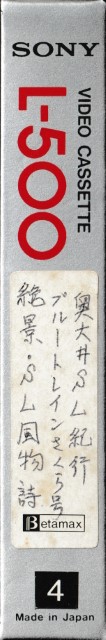 SONY
VIDEO CASSETTE
L-500
奥大井SL紀行
ブルートレインさくら号
絶景・SL風物詩
Betamax
4
Made in Japan